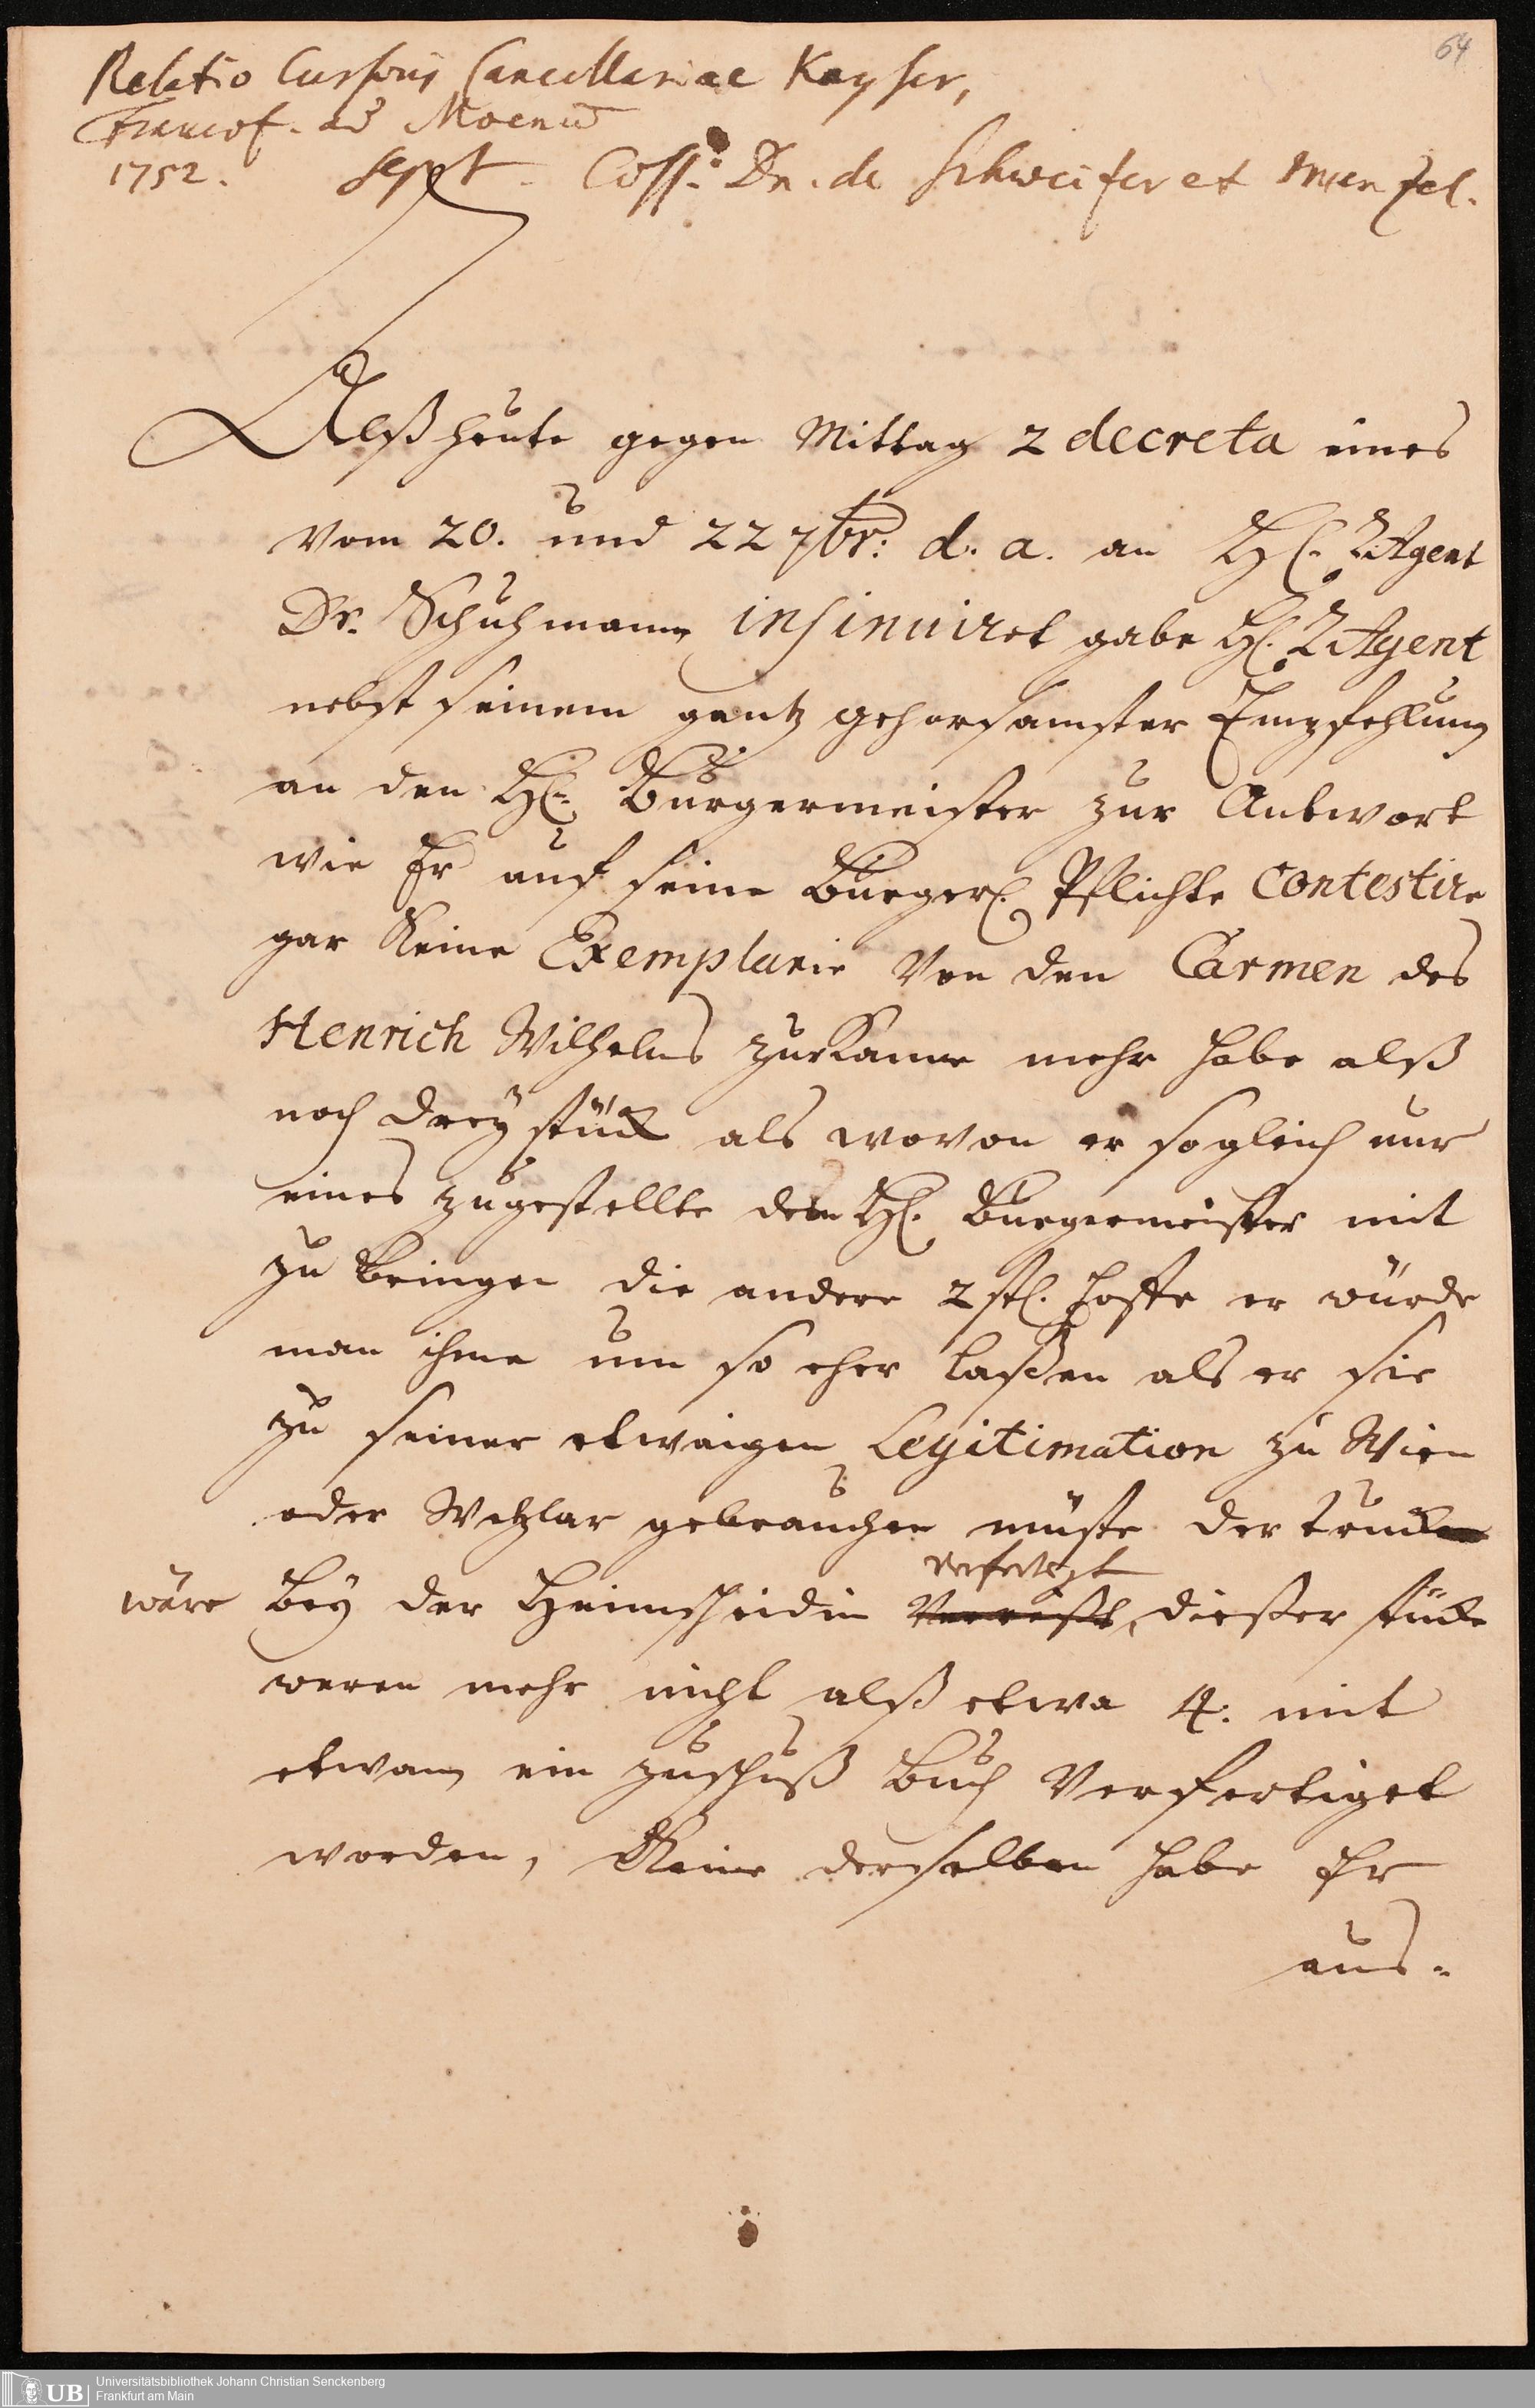 64
Relatio Cursoris Cancellariae Kayser,
Francof. ad Moenū
1752. Sept. Coss. Dn. de Schweitzer et Menzel.
Alß heute gegen Mittag 2 decreta eines
vom 20. und 22 7br: d. a. an H. Agent
Dr. Schuhmann insinuiret gabe H. Agent
nebst seinem gantz gehorsamster Empfehlung
an den H. Burgermeister zur Antwort
wie Er auf seine Burgerl. Pflichte contestire
gar keine Exemplarie von den Carmen des
Henrich Wilhelms mehr habe alß
noch drey stück als wovon er sogleich nur
eines zugestellte dem H. Burgermeister mit
zu bringen die andere 2 st. hoffe er würde
man ihme um so eher laßen als er sie
zu seiner etwaigen Legitimation zu Wien
oder Wetzlar gebrauchen müste der truck
verfertigt
wäre bey der Heinscheidin dießer stücke
weren mehr nicht alß etwa 4. mit
etwann ein zuschuß Buch verfertiget
worden, Keine derselben habe Er
aus-
UB Universitätsbibliothek Johann Christian Senckenberg
Frankfurt am Main